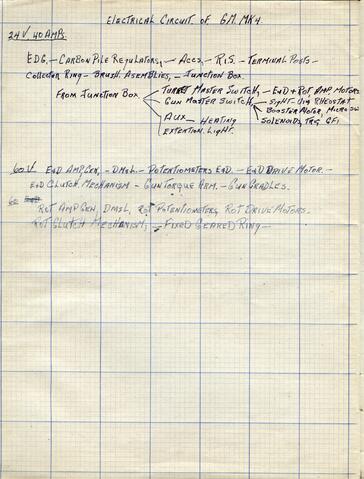 ELECTRICAL CIRCUIT OF GM. MK4.
24V. 40 AMPS.
EDG. – CARBON PILE REGULATORS, – ACCS – R.I.S. – TERMINAL POSTS –
COLLECTOR RING – BRUSH. ASEMBLIES, – JUNCTION BOX
FROM JUNCTION BOX
TURRET MASTER SWITCH, – E&D + ROT. AMP. MOTORS
GUN MASTER SWITCH – SIGHT. DIG RHEOSTAT
BOOSTER MOTOR, MICRO SW
SOLENOIDS, TRG. GFI
AUX – HEATING
EXTENTION. LIGHT.
60.V. E&D AMP GEN, – DMSL – POTENTIOMETERS E&D. – E&D DRIVE MOTOR. –
E&D CLUTCH. MECHANISM – GUN TORQUE ARM. – GUN CRADLES.
60 ROT AMP GEN, DMSL, ROT POTENTIOMETERS, ROT DRIVE MOTORS.
ROT CLUTCH MECHANISM, – FIXED GEARED RING –